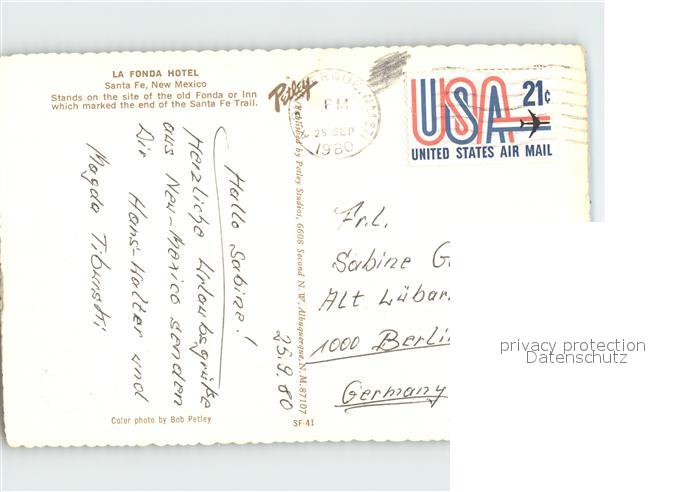 LA FONDA HOTEL
Santa Fe, New Mexico
Stands on the site of the old Fonda or Inn
which marked the end of the Santa Fe Trail.
Petley
Published by Petley Studios, 6608 Second N.W., Albuquerque, N.M. 87107
PM
25 SEP
1980
USA 21¢
UNITED STATES AIR MAIL
Hallo Sabine!
Herzliche Urlaubsgrüße
aus New-Mexico senden
Dir Hans-Walter und
Magda
25.9.80
Frl.
Sabine G
Alt Lübar
1000 Berlin
Germany
Color photo by Bob Petley
SF-41
privacy protection
Datenschutz